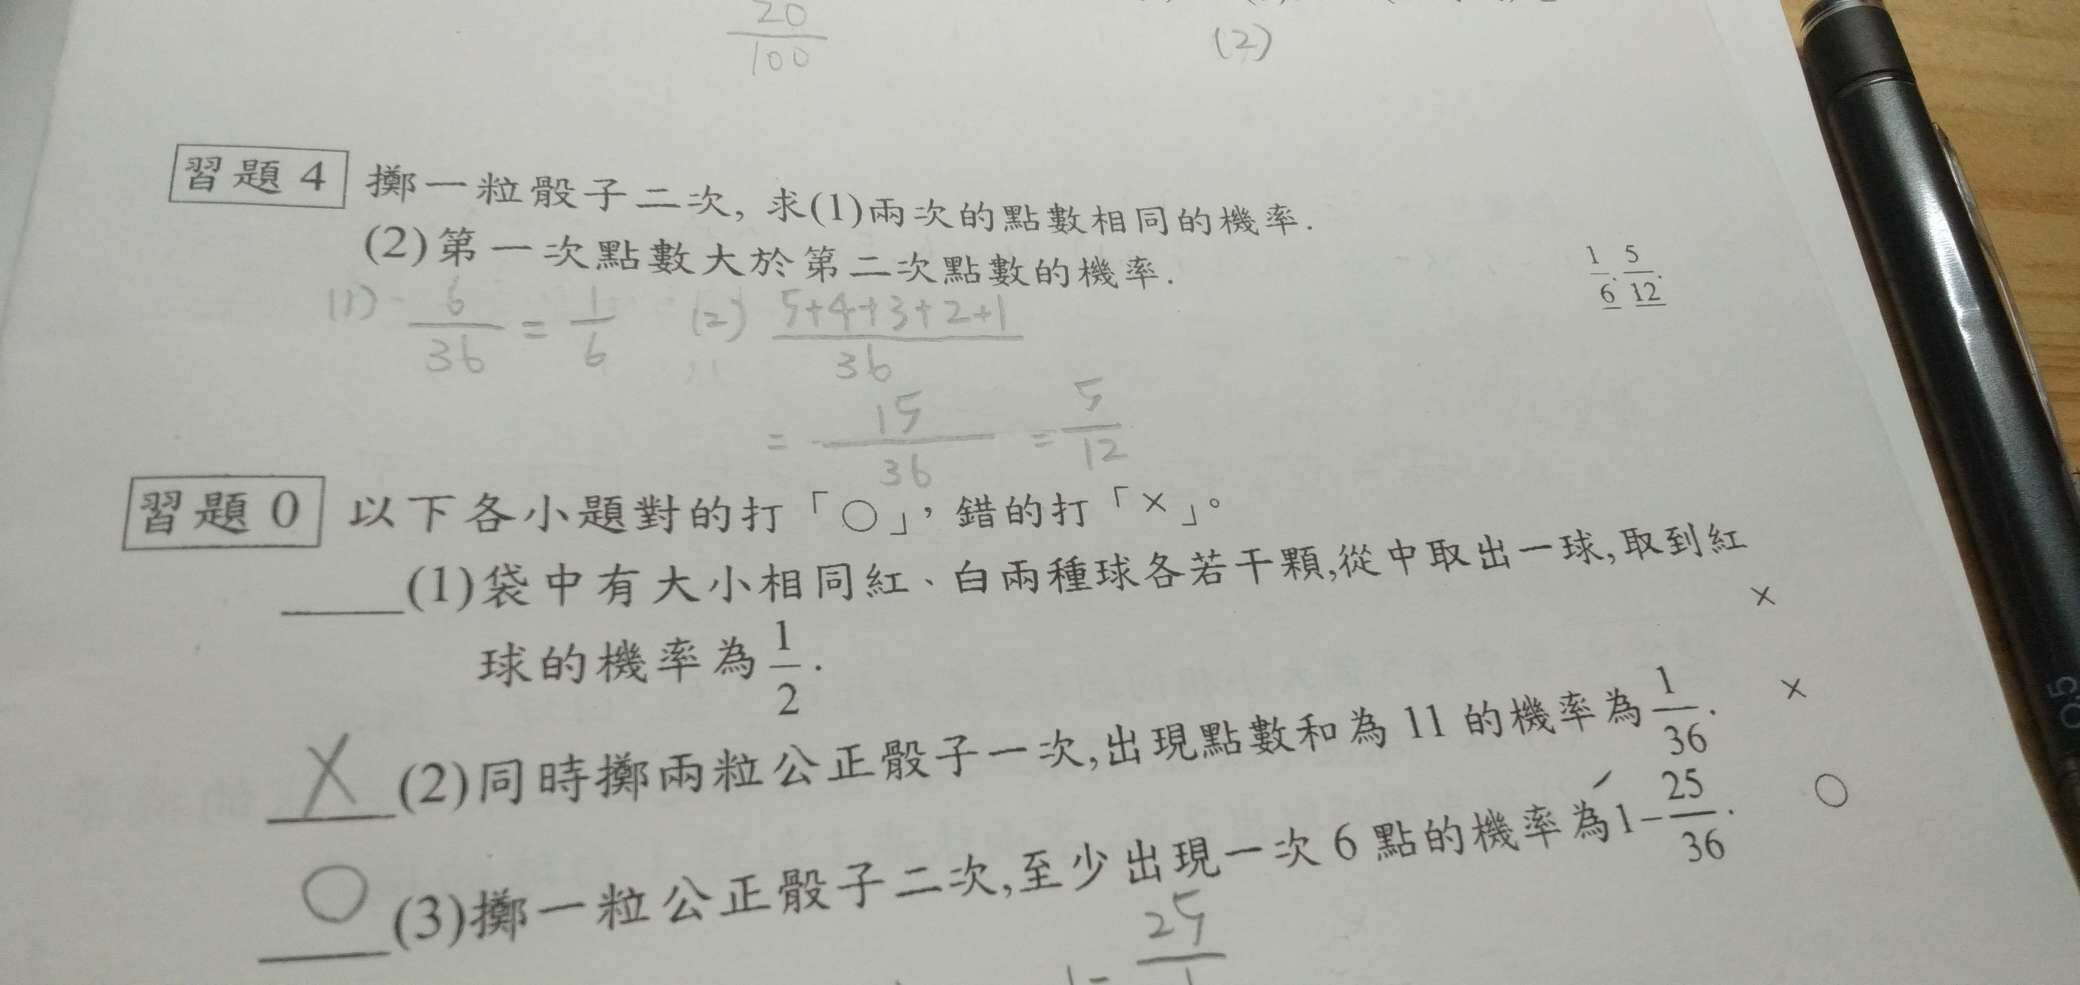 20
100
(2)
習題 4 擲一粒骰子二次, 求(1)兩次的點數相同的機率.
(2)第一次點數大於第二次點數的機率.
1/6. 5/12.
(1) 6/36 = 1/6 (2) 5+4+3+2+1/36
= 15/36 = 5/12
習題 0 以下各小題對的打「○」, 錯的打「×」。
(1)袋中有大小相同紅、白兩種球各若干顆,從中取出一球,取到紅
球的機率為 1/2. ×
X (2)同時擲兩粒公正骰子一次,出現點數和為 11 的機率為 1/36. ×
O (3)擲一粒公正骰子二次,至少出現一次 6 點的機率為 1-25/36. ○
1- 25